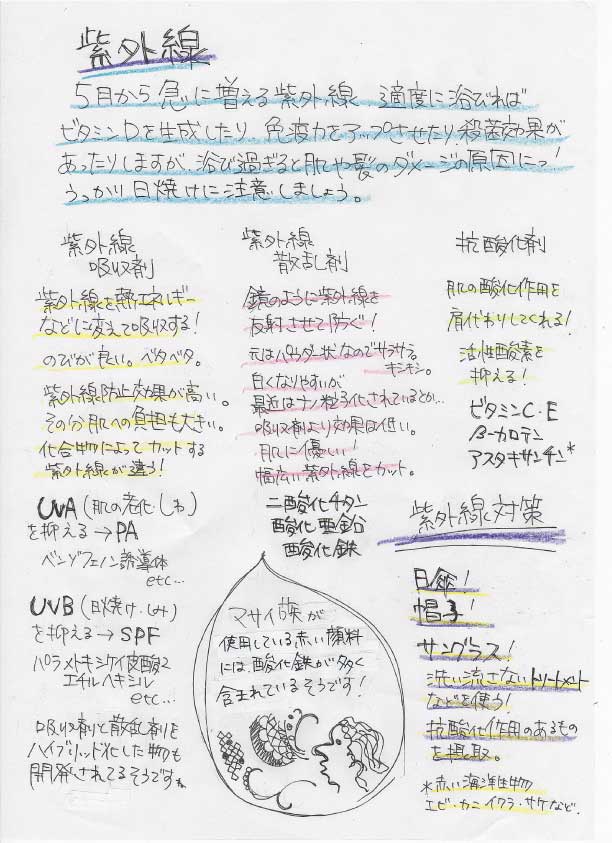 紫外線
5月から急に増える紫外線 適度に浴びれば
ビタミンDを生成したり、免疫力をアップさせたり、殺菌効果が
あったりしますが、浴び過ぎると肌や髪のダメージの原因にっ!
うっかり日焼けに注意しましょう。
紫外線
吸収剤
紫外線を熱エネルギー
などに変えて吸収する!
のびが良い。ベタベタ。
紫外線防止効果が高い。
その分肌への負担も大きい。
化合物によってカットする
紫外線が違う!
UVA(肌の老化 しわ)
を抑える→PA
ベンゾフェノン誘導体
etc…
UVB(日焼け・しみ)
を抑える→SPF
パラメトキシケイ皮酸2
エチルヘキシル
etc…
吸収剤と散乱剤を
ハイブリッド化した物も
開発されてるそうですね
紫外線
散乱剤
鏡のように紫外線を
反射させて防ぐ!
元はパウダー状なのでサラサラ。
キシキシ。
白くなりやすいが
最近はナノ粒子化されているとか…
吸収剤より効果は低い。
肌に優しい!
幅広い紫外線をカット。
二酸化チタン
酸化亜鉛
酸化鉄
マサイ族が
使用している赤い顔料
には、酸化鉄が多く
含まれているそうです!
抗酸化剤
肌の酸化作用を
肩代わりしてくれる!
活性酸素を
抑える!
ビタミンC・E
β-カロテン
アスタキサンチン*
紫外線対策
日傘!
帽子!
サングラス!
洗い流さないトリートメント
などを使う!
抗酸化作用のあるもの
を摂取。
*赤い海洋生物
エビ・カニ イクラ・サケなど.